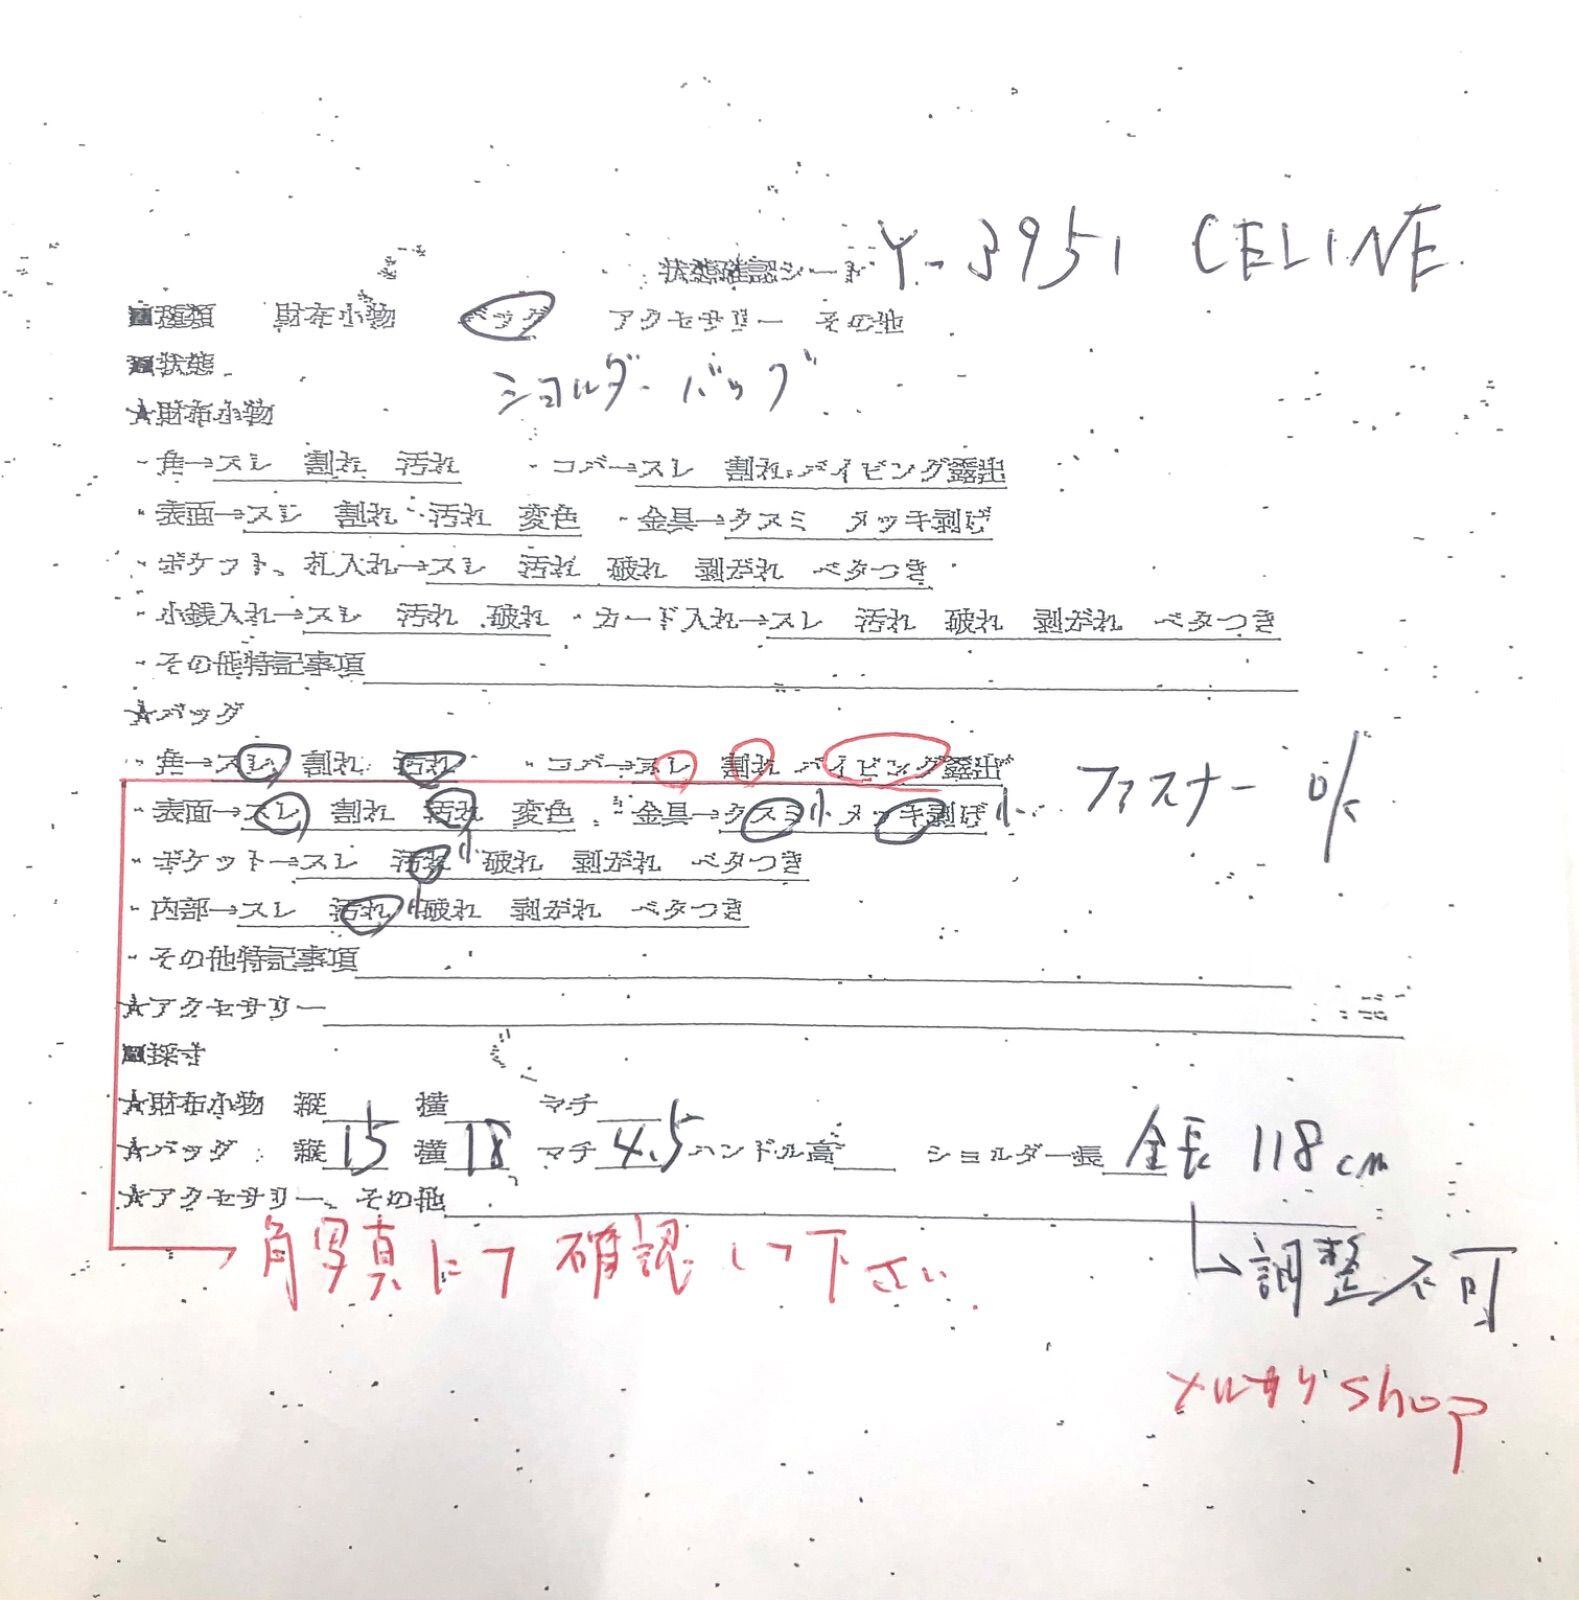 状態確認シート Y-3951 CELINE
■種類 財布小物 バッグ アクセサリー その他
■状態
ショルダーバッグ
★財布小物
・角→スレ 割れ 汚れ ・コバ→スレ 割れ パイピング露出
・表面→スレ 割れ 汚れ 変色 ・金具→クスミ メッキ剥げ
・ポケット、札入れ→スレ 汚れ 破れ 剥がれ ベタつき
・小銭入れ→スレ 汚れ 破れ ・カード入れ→スレ 汚れ 破れ 剥がれ ベタつき
・その他特記事項
★バッグ
・角→スレ 割れ 汚れ ・コバ→スレ 割れ パイピング露出 ファスナー
・表面→スレ 割れ 汚れ 変色 ・金具→クスミ小 メッキ剥げ小
・ポケット→スレ 汚れ小 破れ 剥がれ ベタつき
・内部→スレ 汚れ小 破れ 剥がれ ベタつき
・その他特記事項
★アクセサリー
■採寸
★財布小物 縦 横 マチ
★バッグ 縦15 横18 マチ4.5 ハンドル高 ショルダー長 全長 118cm
★アクセサリー、その他
→角写真にて確認して下さい
↳調整不可
メルカリshop